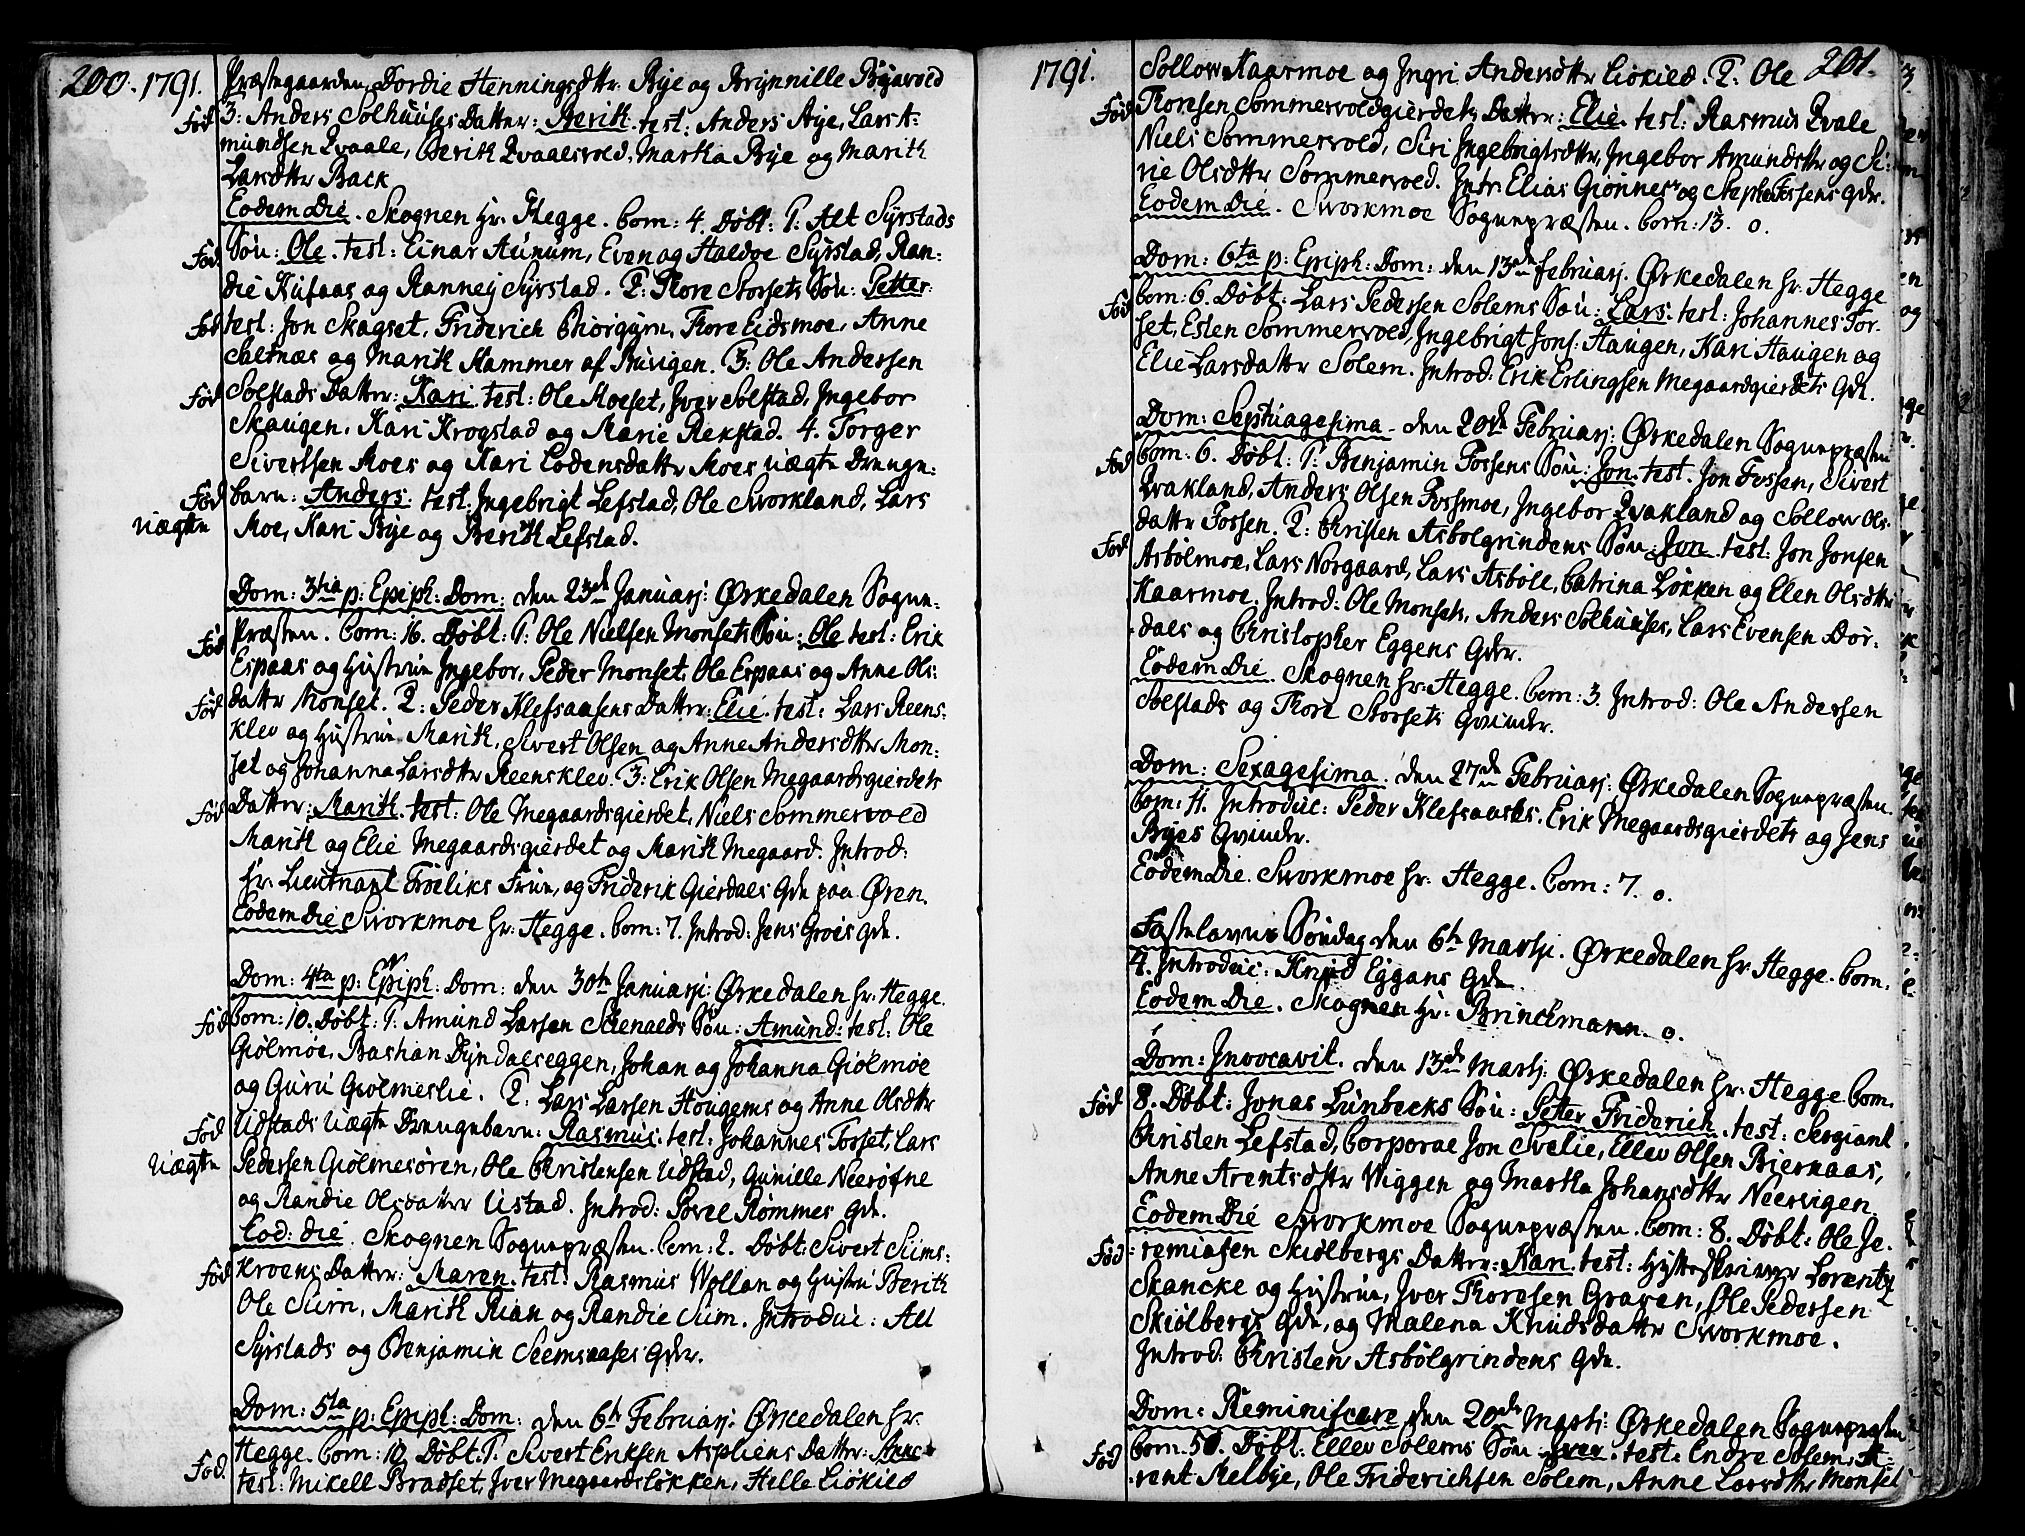 200. 1791. Præstegaarden, Dordie Henningsdttr Bye og Brynnille Byavold
Fød 3. Anders Solhuuses Datter: Berith. test: Anders Aye, Lars A-
mundsen Qvaale, Berith Qvaalsvold, Martha Bye og Marith
Larsdttr Back
Eodem Die. Skognen hr. Hegge. Com: 4. Døbt: 1. Alt Syrstads
Fød Søn: Ole. test: Einar Aunum, Even og Haldoe Syrstad, Ran-
die Kufaas og Ranney Syrstad. 2: Thore Storsets Søn: Petter.
Fød test: Jon Skagset, Friderich Thiorgurn, Thore Eidsmoe, Anne
Saltnæs og Marith Hammer af Buvigen. 3: Ole Andersen
Fød Solstads Datter: Kari. test: Ole Moeset, Iver Solstad, Ingebor
Skaugen, Kari Krogstad og Marie Rekstad. 4. Torger
Sivertsen Moes og Kari Lodensdattr Moes uægte Drenge-
Fød barn: Anders. test: Ingebrigt Lefstad, Ole Svorkland, Lars
uægte Moe, Kari Bye og Berith Lefstad.
Dom: 3tia p: Epiph: Dom: den 23de Januarj: Ørkedalen Sogne-
Fød Præsten. Com: 16. Døbt: 1: Ole Nielsen Monsets Søn: Ole test: Erik
Espaas og Hustrue Ingebor, Peder Monset, Ole Espaas og Anne Ols-
Fød dattr Monset. 2: Peder Klefsaasens Datter: Elie. test: Lars Reens-
klev og Hustrue Marith, Sivert Olsen og Anne Andersdttr Mon-
set og Johanna Larsdttr Reensklev. 3: Erik Olsen Megaardsgierdets
Fød Datter: Marith. test: Ole Megaardsgierdet, Niels Sommervold
Marith og Elie Megaardsgierdet og Marith Megaard. Introd:
hr. Lieutnant Frøliks Frue, og Friderik Gierdals Qde paa Øren.
Eodem Die Svorkmoe hr: Hegge. Com: 7. Introd: Jens Groes Qde.
Dom: 4ta p: Epiph: Dom: den 30te Januarj: Ørkedalen hr: Hegge.
Fød Com: 10. Døbt: 1. Amund Larsen Skenalds Søn: Amund: test: Ole
Giølmoe, Bastian Dyndalseggen, Johan og Johanna Giølmoe
og Guru Giølmeslie. 2: Lars Larsen Hougems og Anne Olsdttr
Fød Udstads uægte Drengebarn: Rasmus. test: Johannes Forset, Lars
uægte Pedersen Giølmesøren, Ole Christensen Udstad, Gunille Neerøfne
og Randie Olsdatter Ustad. Introd: Povel Rømmes Qde.
Eod: die. Skognen Sognepræsten. Com: 2. Døbt: Sivert Sums-
Fød kroens Datter: Maren. test: Rasmus Wollan og Hustru Berith
Ole Sum, Marith Rian og Randie Sum. Introduc: Alt
Syrstads og Benjamin Seemsaases Qder.
Dom: 5ta p: Epiph: Dom: den 6te Februarj: Ørkedalen hr.
Hegge. Com: 10. Døbt. 1. Sivert Eriksen Aspliens Datter: Anne
Fød. test: Mikell Bradset, Iver Megaardsløkken, Helle Liøkied
1791. Sollow Kaarmoe og Ingri Andersdttr Liøkied. 2: Ole 201.
Fød Thoresen Sommervoldgierdets Datter: Elie. test: Rasmus Qvale
Niels Sommervold, Siri Ingebrigtsdttr, Ingebor Amundsdttr og Si-
rie Olsdttr Sommervold. Intr: Elias Giønnes og Steph: Fossens Qdr.
Eodem Die. Svorkmoe Sognepræsten. Com: 13. o.
Dom: 6ta p: Epiph: Dom: den 13de februarj. Ørkedalen hr: Hegge
Fød Com: 6. Døbt: Lars Pedersen Solems Søn: Lars. test: Johannes For-
set, Esten Sommervold, Ingebrigt Jons: Haugen, Kari Haugen og
Elie Larsdatter Solem. Introd: Erik Erlingsen Megaardgierdets Qde.
Dom: Septuagesima. den 20de Februarj: Ørkedalen Sognepræsten
Fød Com: 6. Døbt: 1: Benjamin Fossens Søn: Jon. test. Jon Fossen, Sivert
Qvakland, Anders Olsen Fossmoe, Ingebor Qvakland og Sollow Ols-
Fød dattr Fossen. 2: Christen Asbølgrindens Søn: Jon. test: Jon Jonsen
Asbølmoe, Lars Norgaard, Lars Asbøll, Catrina Løkken og Elen Olsdttr
Kaarmoe. Introd: Ole Monsets, Anders Solhuuses, Lars Evensen Dør-
dals og Christopher Eggens Qdr.
Eodem Die. Skognen hr: Hegge. Com: 3. Introd: Ole Andersen
Solstads og Thore Storsets Qvinder.
Dom: Sexagesima. den 27de Februarj: Ørkedalen Sognepræsten.
Com: 11. Introduc: Peder Klefsaasens. Erik Megaardsgierdets og Jens
Byes Qvinder.
Eodem Die. Svorkmoe hr: Hegge. Com: 7. o.
Fastelavns Søndag den 6te Martj. Ørkedalen hr: Hegge. Com.
4. Introduc: Knud Eggans Qde.
Eodem Die. Skognen Hr: Brinckmann. o.
Dom: Invocavit. den 13de Martj: Ørkedalen hr: Hegge Com.
Fød 8. Døbt: Jonas Lunbecks Søn: Peter Friderich. test: Sergiant
Christen Lefstad, Corporal Jon Svelie, Ellev Olsen Bierkaas,
Anne Arentsdttr Wiggen og Martha Johansdttr Neervigen.
Eodem Die Svorkmoe Sognepræsten. Com: 8. Døbt: Ole Je-
Fød remiasen Skiølbergs Datter: Kari. test: Hytteskriver Lorentz
Skancke og Hustrue, Iver Thoresen Graven, Ole Pedersen
Skiølbergs Qde, og Malena Knudsdattr Svorkmoe.
Introd: Christen Asbølgrindens Qde.
Dom: Reminiscere den 20de Martj: Ørkedalen Sognepræsten
Fød Com. 50. Døbt: Ellev Solems Søn: Iver. test: Endre Solem, A-
rent Melbye, Ole Friderichsen Solem, Anne Larsdttr Monset